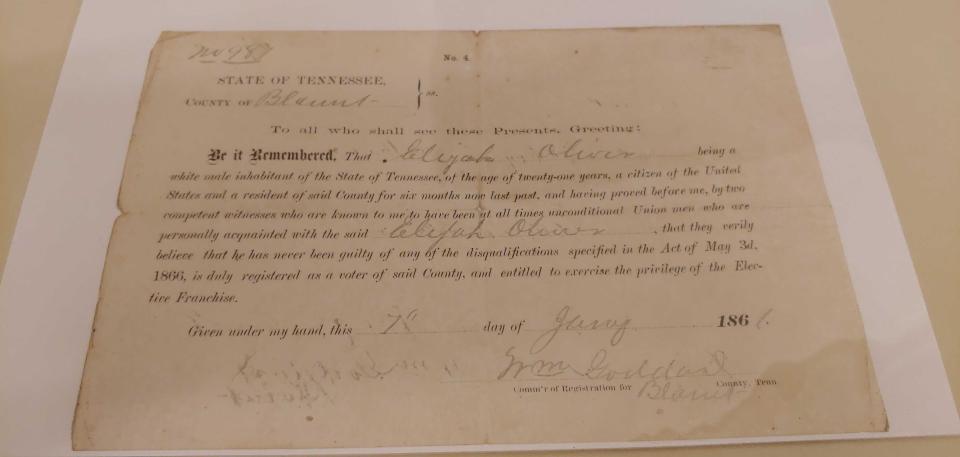 No 987
No. 4
STATE OF TENNESSEE,
COUNTY OF Blount } ss.
To all who shall see these Presents, Greeting:
Be it Remembered, That Elijah Oliver being a
white male inhabitant of the State of Tennessee, of the age of twenty-one years, a citizen of the United
States and a resident of said County for six months now last past, and having proved before me, by two
competent witnesses who are known to me to have been at all times unconditional Union men who are
personally acquainted with the said Elijah Oliver, that they verily
believe that he has never been guilty of any of the disqualifications specified in the Act of May 3d,
1866, is duly registered as a voter of said County, and entitled to exercise the privilege of the Elec-
tive Franchise.
Given under my hand, this 7" day of 186
Wm Goddard
Comm'r of Registration for Blount County, Tenn